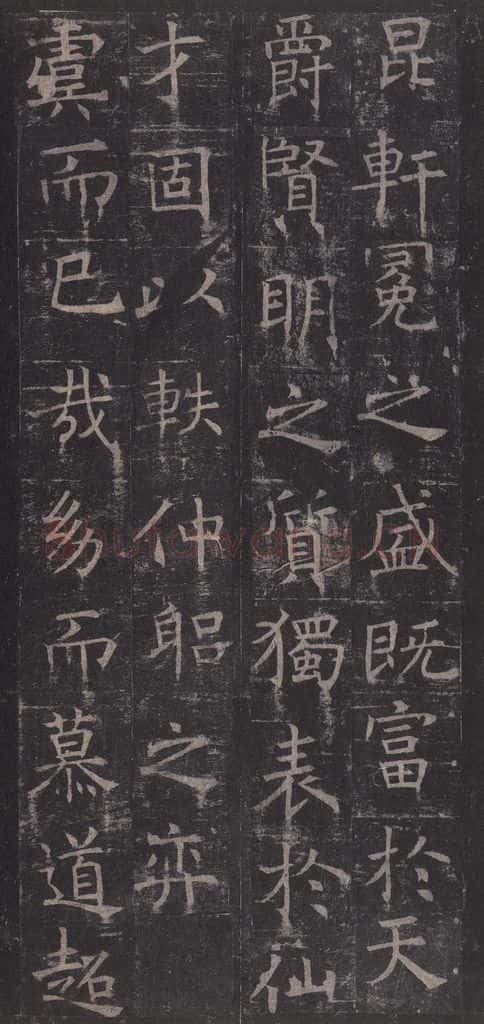 昆軒冕之盛既富於天
爵賢眀之質獨表於仙
才固以軼仲躳之弈
虞而已哉幼而慕道超
Shufawang.CN